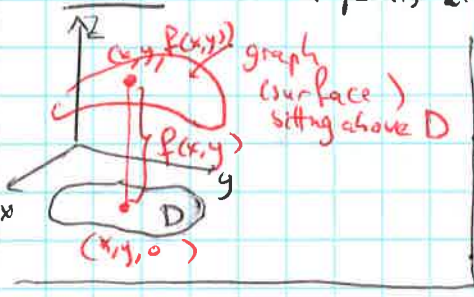 z
(x, y, f(x,y))
graph
(surface)
sitting above D
f(x,y)
x
y
D
(x, y, 0)